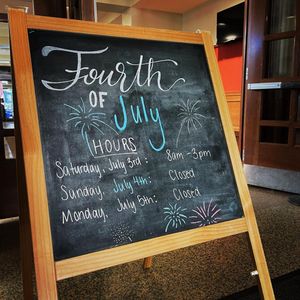 Fourth
OF
July
HOURS
Saturday, July 3rd: 8am-3pm
Sunday, July 4th: Closed
Monday, July 5th: Closed